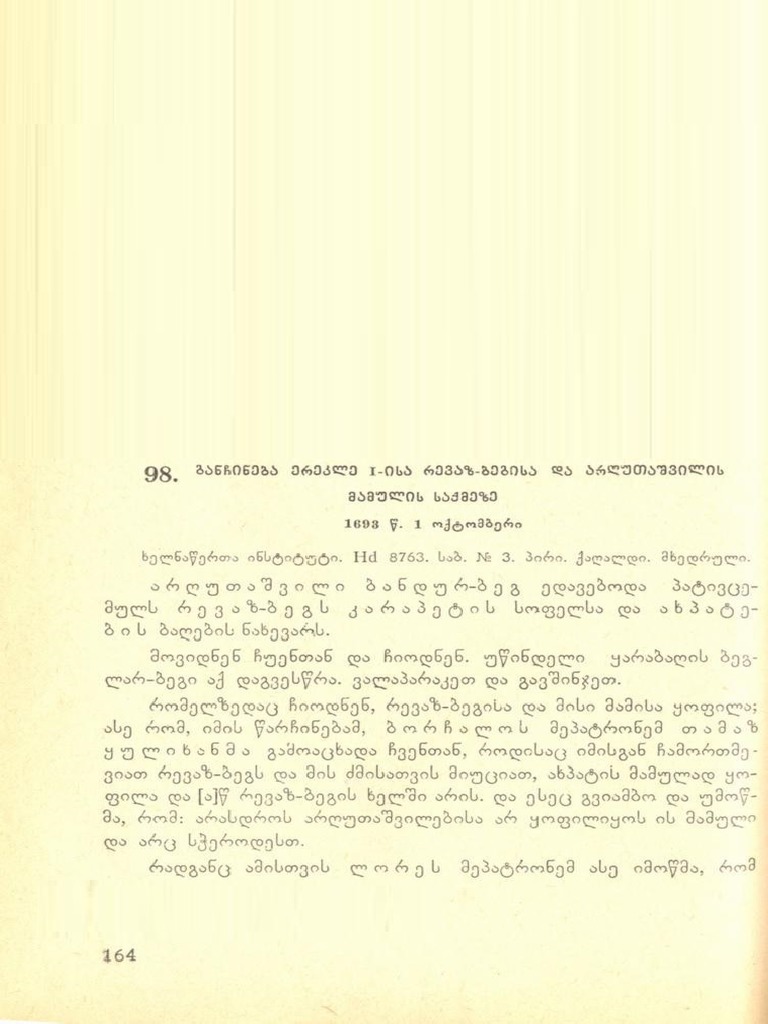 98. განჩინება ერეკლე I-ისა რევაზ-ბეგისა და არღუთაშვილის
მამულის საქმეზე
1693 წ. 1 ოქტომბერი
ხელნაწერთა ინსტიტუტი. Hd 8763. საბ. № 3. პირი. ქაღალდი. მხედრული.
არღუთაშვილი ბანდურ-ბეგ ედავებოდა პატივცე-
მულს რევაზ-ბეგს კარაპეტის სოფელსა და ახპატე-
ბის ბაღების ნახევარს.
მოვიდნენ ჩუენთან და ჩიოდნენ. უწინდელი ყარაბაღის ბეგ-
ლარ-ბეგი აქ დაგვესწრა. ვალაპარაკეთ და გავშინჯეთ.
რომელზედაც ჩიოდნენ, რევაზ-ბეგისა და მისი მამისა ყოფილა;
ასე რომ, იმის წარჩინებამ, ბორჩალოს მეპატრონემ თამაზ
ყულიხანმა გამოაცხადა ჩვენთან, როდისაც იმისგან ჩამორთმე-
ვიათ რევაზ-ბეგს და მის ძმისათვის მიუციათ, ახპატის მამულად ყო-
ფილა და [ა]წ რევაზ-ბეგის ხელში არის. და ესეც გვიამბო და უმოწ-
მა, რომ: არასდროს არღუთაშვილებისა არ ყოფილიყოს ის მამული
და არც სჭეროდესთ.
რადგანც ამისთვის ლორეს მეპატრონემ ასე იმოწმა, რომ
164